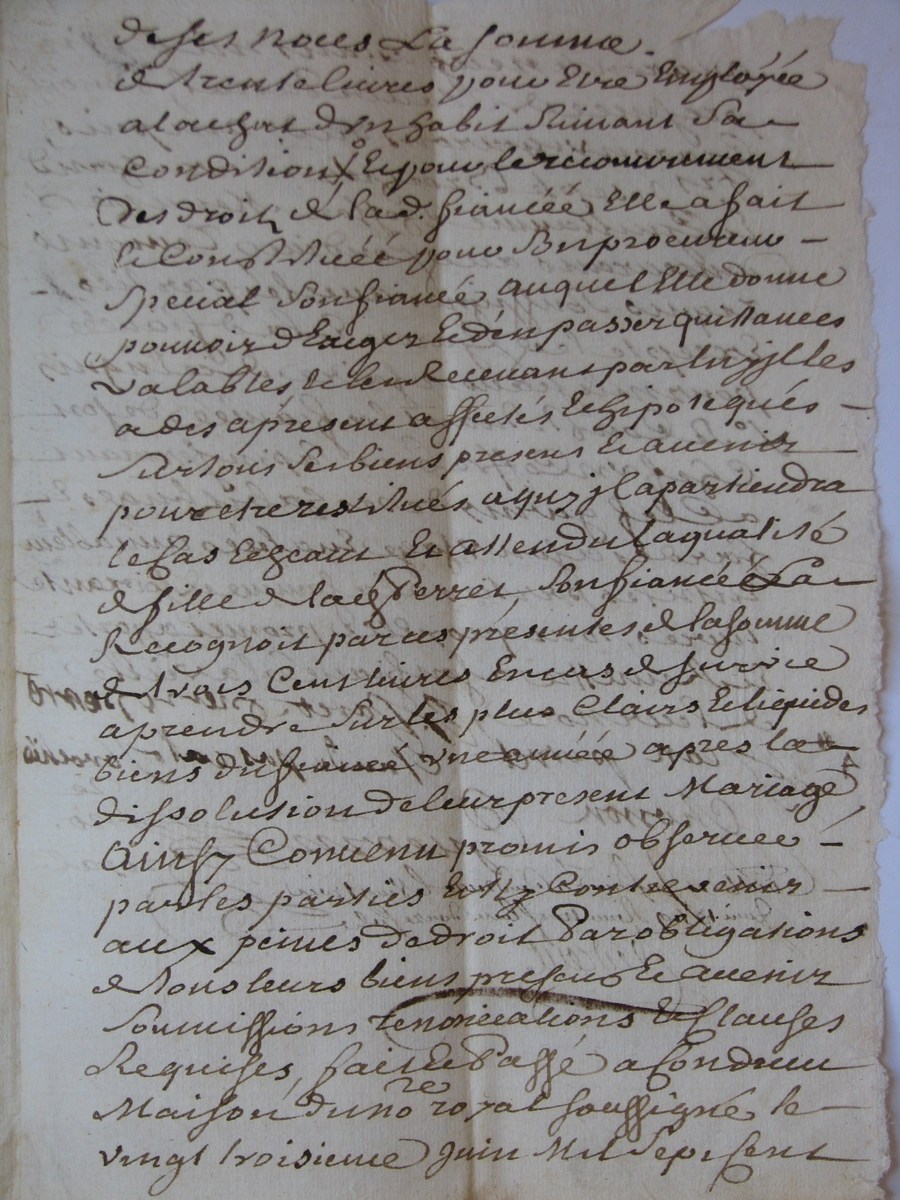 de ses noces La somme
de trente livres pour Etre Employée
a l'achat d'un habit suivant sa
Condition, Et pour le recouvrement
des droits de la d. fiancée Elle a fait
& Constitué pour son procureur
special son fiancé auquel Elle donne
pouvoir d'Exiger & d'en passer quittances
valables & les Recevant par luy jl les
a des apresent affectés & hipotequés
sur tous ses biens presens & avenir
pour etre restitués a quy jl apartiendra
le Cas Echeant Et attendu la qualité
de fille de lad. Perret son fiancé La
Recognoit par ces présentes de la somme
de trois Cent livres En cas de survie
a prendre sur les plus Clairs & liquides
biens du fiancé une année apres la
dissolution de leur present Mariage
Ainsy Convenu promis observer
par les parties & n'y Contrevenir
aux peines de droit Par obligations
de tous leurs biens presens & avenir
soumissions renonciations & Clauses
Requises, fait & Passé a Condrieu
Maison du no.re royal soussigné le
vingt troisieme Juin Mil Sept Cent